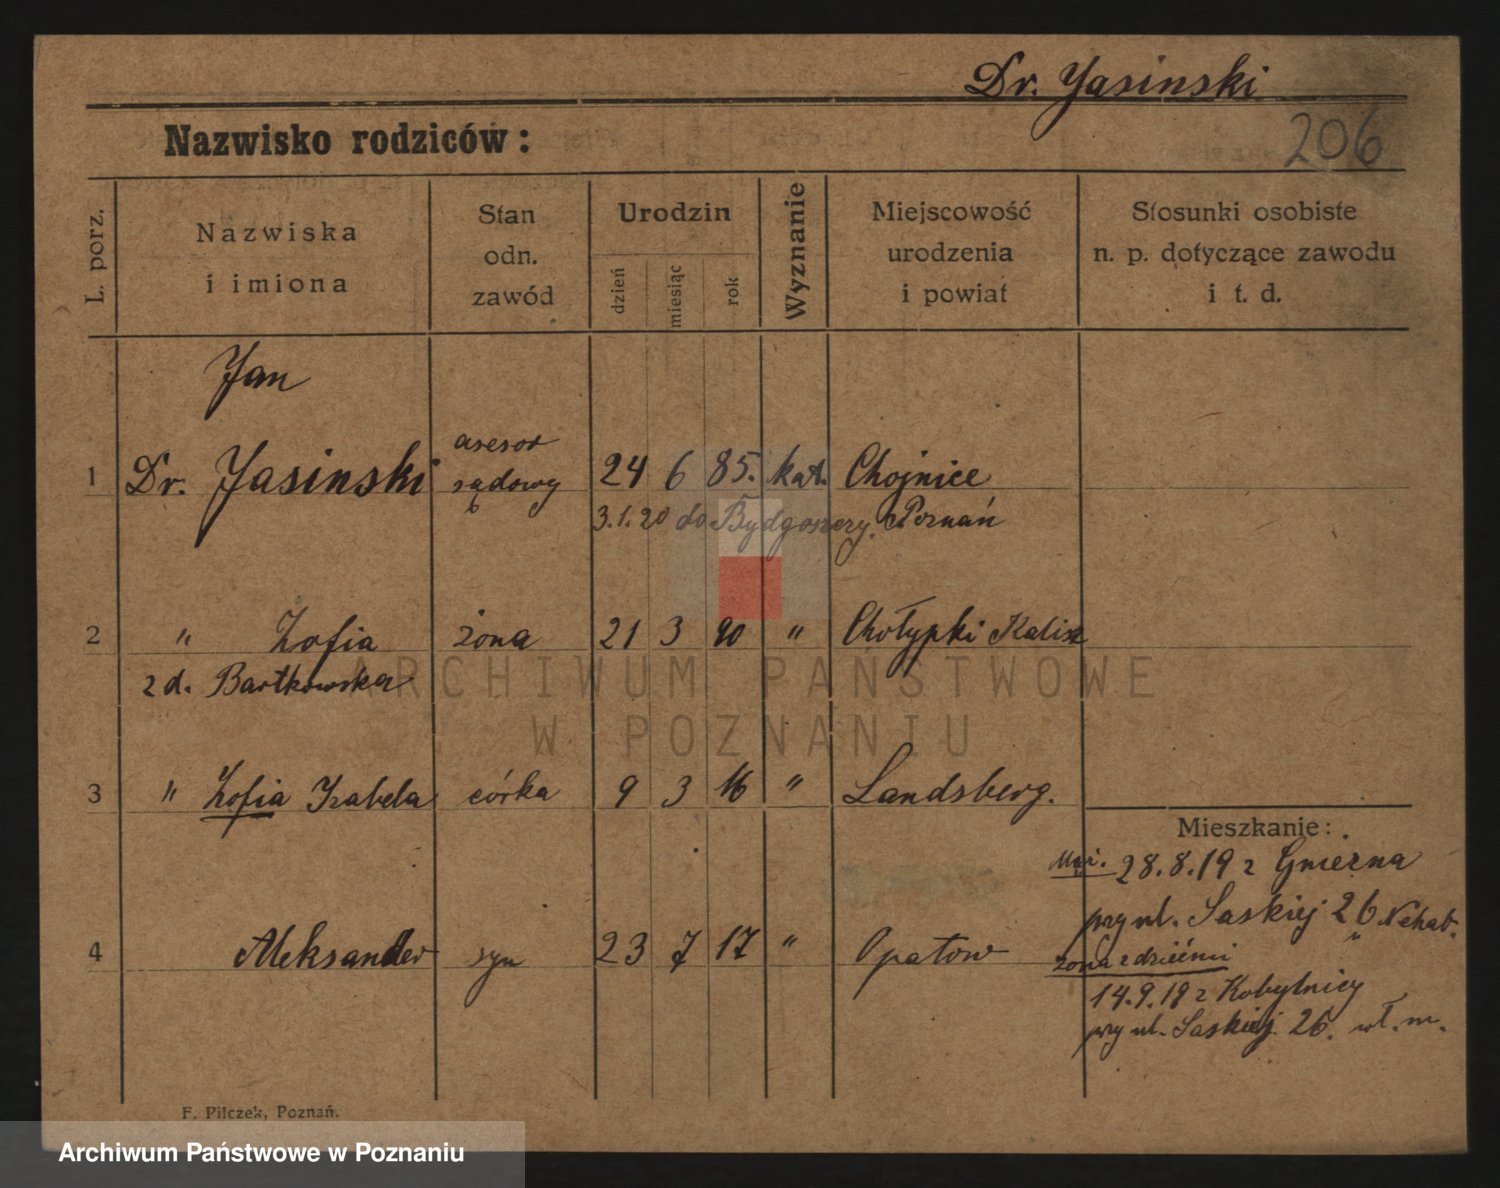 Dr. Jasinski
206
Nazwisko rodziców:
L. porz.
Nazwiska
i imiona
Stan
odn.
zawód
Urodzin
dzień
miesiąc
rok
Wyznanie
Miejscowość
urodzenia
i powiat
Stosunki osobiste
n. p. dotyczące zawodu
i t. d.
Jan
1 Dr. Jasinski asesor sądowy 24 6 85. kat. Chojnice
3.1.20 do Bydgoszczy. Poznań
2 " Zofia żona 21 3 90 " Chołypki Kalisz
z d. Bartkowska
3 " Zofia Izabela córka 9 3 16 " Landsberg.
4 Aleksander syn 23 7 17 " Opatow
Mieszkanie:
28.8.19 z Gniezna
przy ul. Saskiej 26 Nehab.
żona z dziećmi
14.9.19 z Kobylnicy
przy ul. Saskiej 26. wł. m.
F. Pilczek, Poznań.
ARCHIWUM PAŃSTWOWE
W POZNANIU
Archiwum Państwowe w Poznaniu